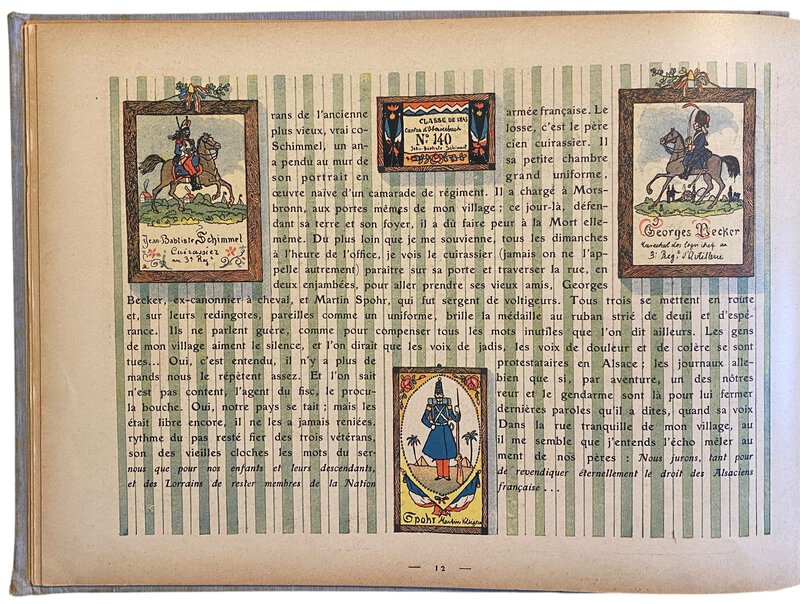 Jean-Baptiste Schimmel
Cuirassier
au 3e Regt
CLASSE DE 1845
Canton d'
No 140
Jean-Baptiste Schimmel
Georges Becker
Marechal des logis chef au
3e Regt d'Artillerie
rans de l'ancienne armée française. Le
plus vieux, vrai co- losse, c'est le père
Schimmel, un an- cien cuirassier. Il
a pendu au mur de sa petite chambre
son portrait en grand uniforme,
œuvre naïve d'un camarade de régiment. Il a chargé à Mors-
bronn, aux portes mêmes de mon village ; ce jour-là, défen-
dant sa terre et son foyer, il a dû faire peur à la Mort elle-
même. Du plus loin que je me souvienne, tous les dimanches
à l'heure de l'office, je vois le cuirassier (jamais on ne l'ap-
pelle autrement) paraître sur sa porte et traverser la rue, en
deux enjambées, pour aller prendre ses vieux amis, Georges
Becker, ex-canonnier à cheval, et Martin Spohr, qui fut sergent de voltigeurs. Tous trois se mettent en route
et, sur leurs redingotes, pareilles comme un uniforme, brille la médaille au ruban strié de deuil et d'espé-
rance. Ils ne parlent guère, comme pour compenser tous les mots inutiles que l'on dit ailleurs. Les gens
de mon village aiment le silence, et l'on dirait que les voix de jadis, les voix de douleur et de colère se sont
tues... Oui, c'est entendu, il n'y a plus de protestataires en Alsace ; les journaux alle-
mands nous le répètent assez. Et l'on sait bien que si, par aventure, un des nôtres
n'est pas content, l'agent du fisc, le procu- reur et le gendarme sont là pour lui fermer
la bouche. Oui, notre pays se tait ; mais les dernières paroles qu'il a dites, quand sa voix
était libre encore, il ne les a jamais reniées. Dans la rue tranquille de mon village, au
rythme du pas resté fier des trois vétérans, il me semble que j'entends l'écho mêler au
son des vieilles cloches les mots du ser- ment de nos pères : Nous jurons, tant pour
nous que pour nos enfants et leurs descendants, de revendiquer éternellement le droit des Alsaciens
et des Lorrains de rester membres de la Nation française . . .
Spohr Martin
— 12 —